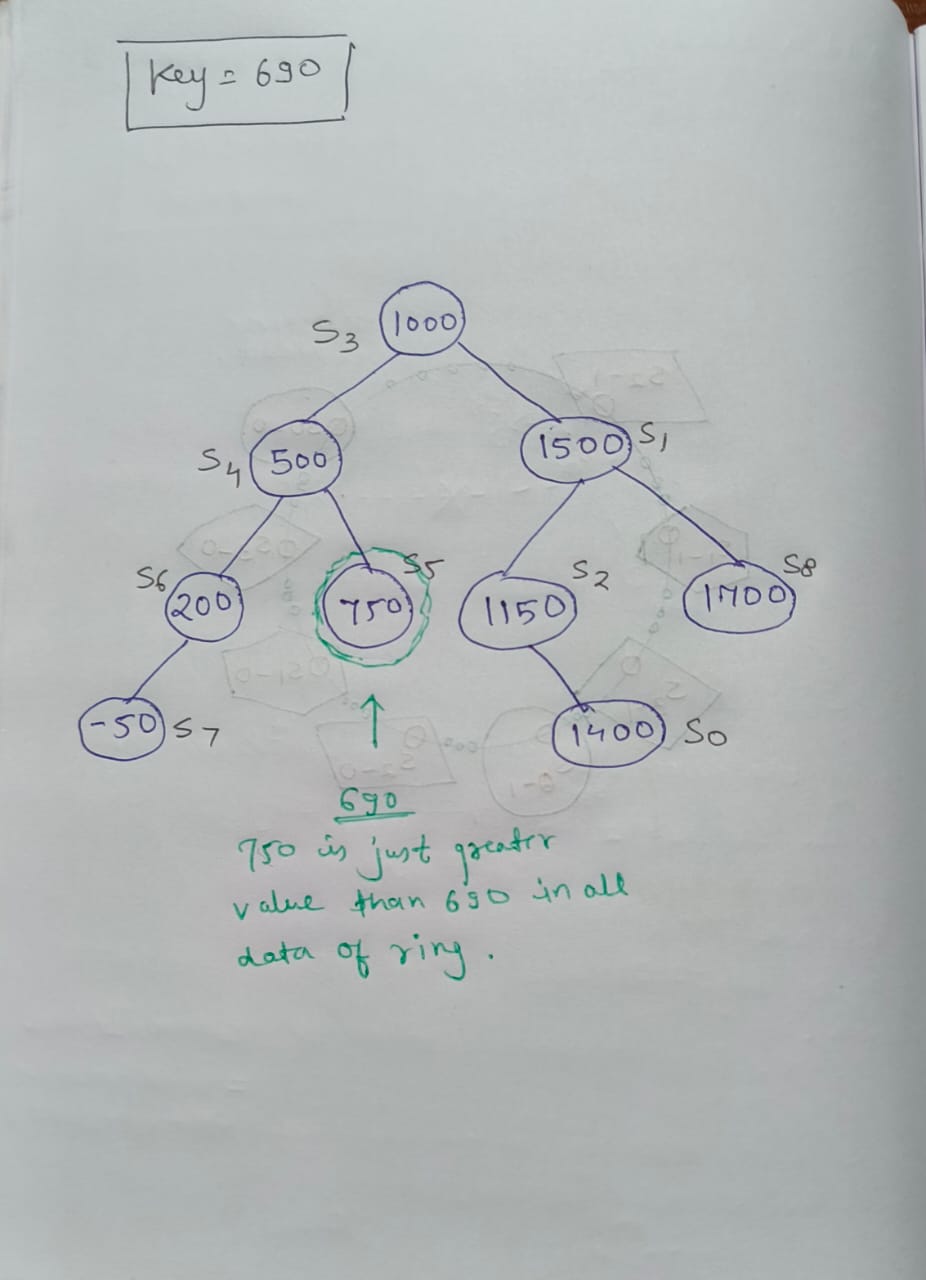 Key = 690
1000
S3
500
S4
1500
S1
S6
200
750
S5
1150
S2
1700
S8
-50
S7
1400
S0
690
750 is just greater
value than 690 in all
data of ring.